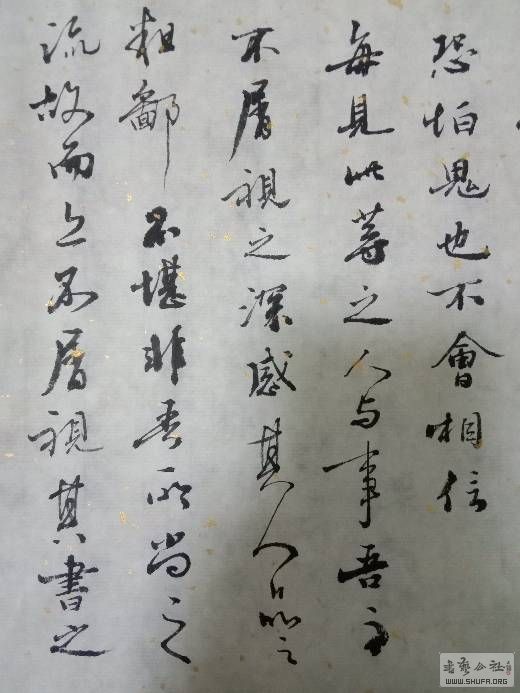 恐怕鬼也不會相信
每見此等之人与事吾亦
不屑視之深感其人品之
粗鄙不堪非吾所尚之
流故而亦不屑視其書之
书艺公社
WWW.SHUFA.ORG